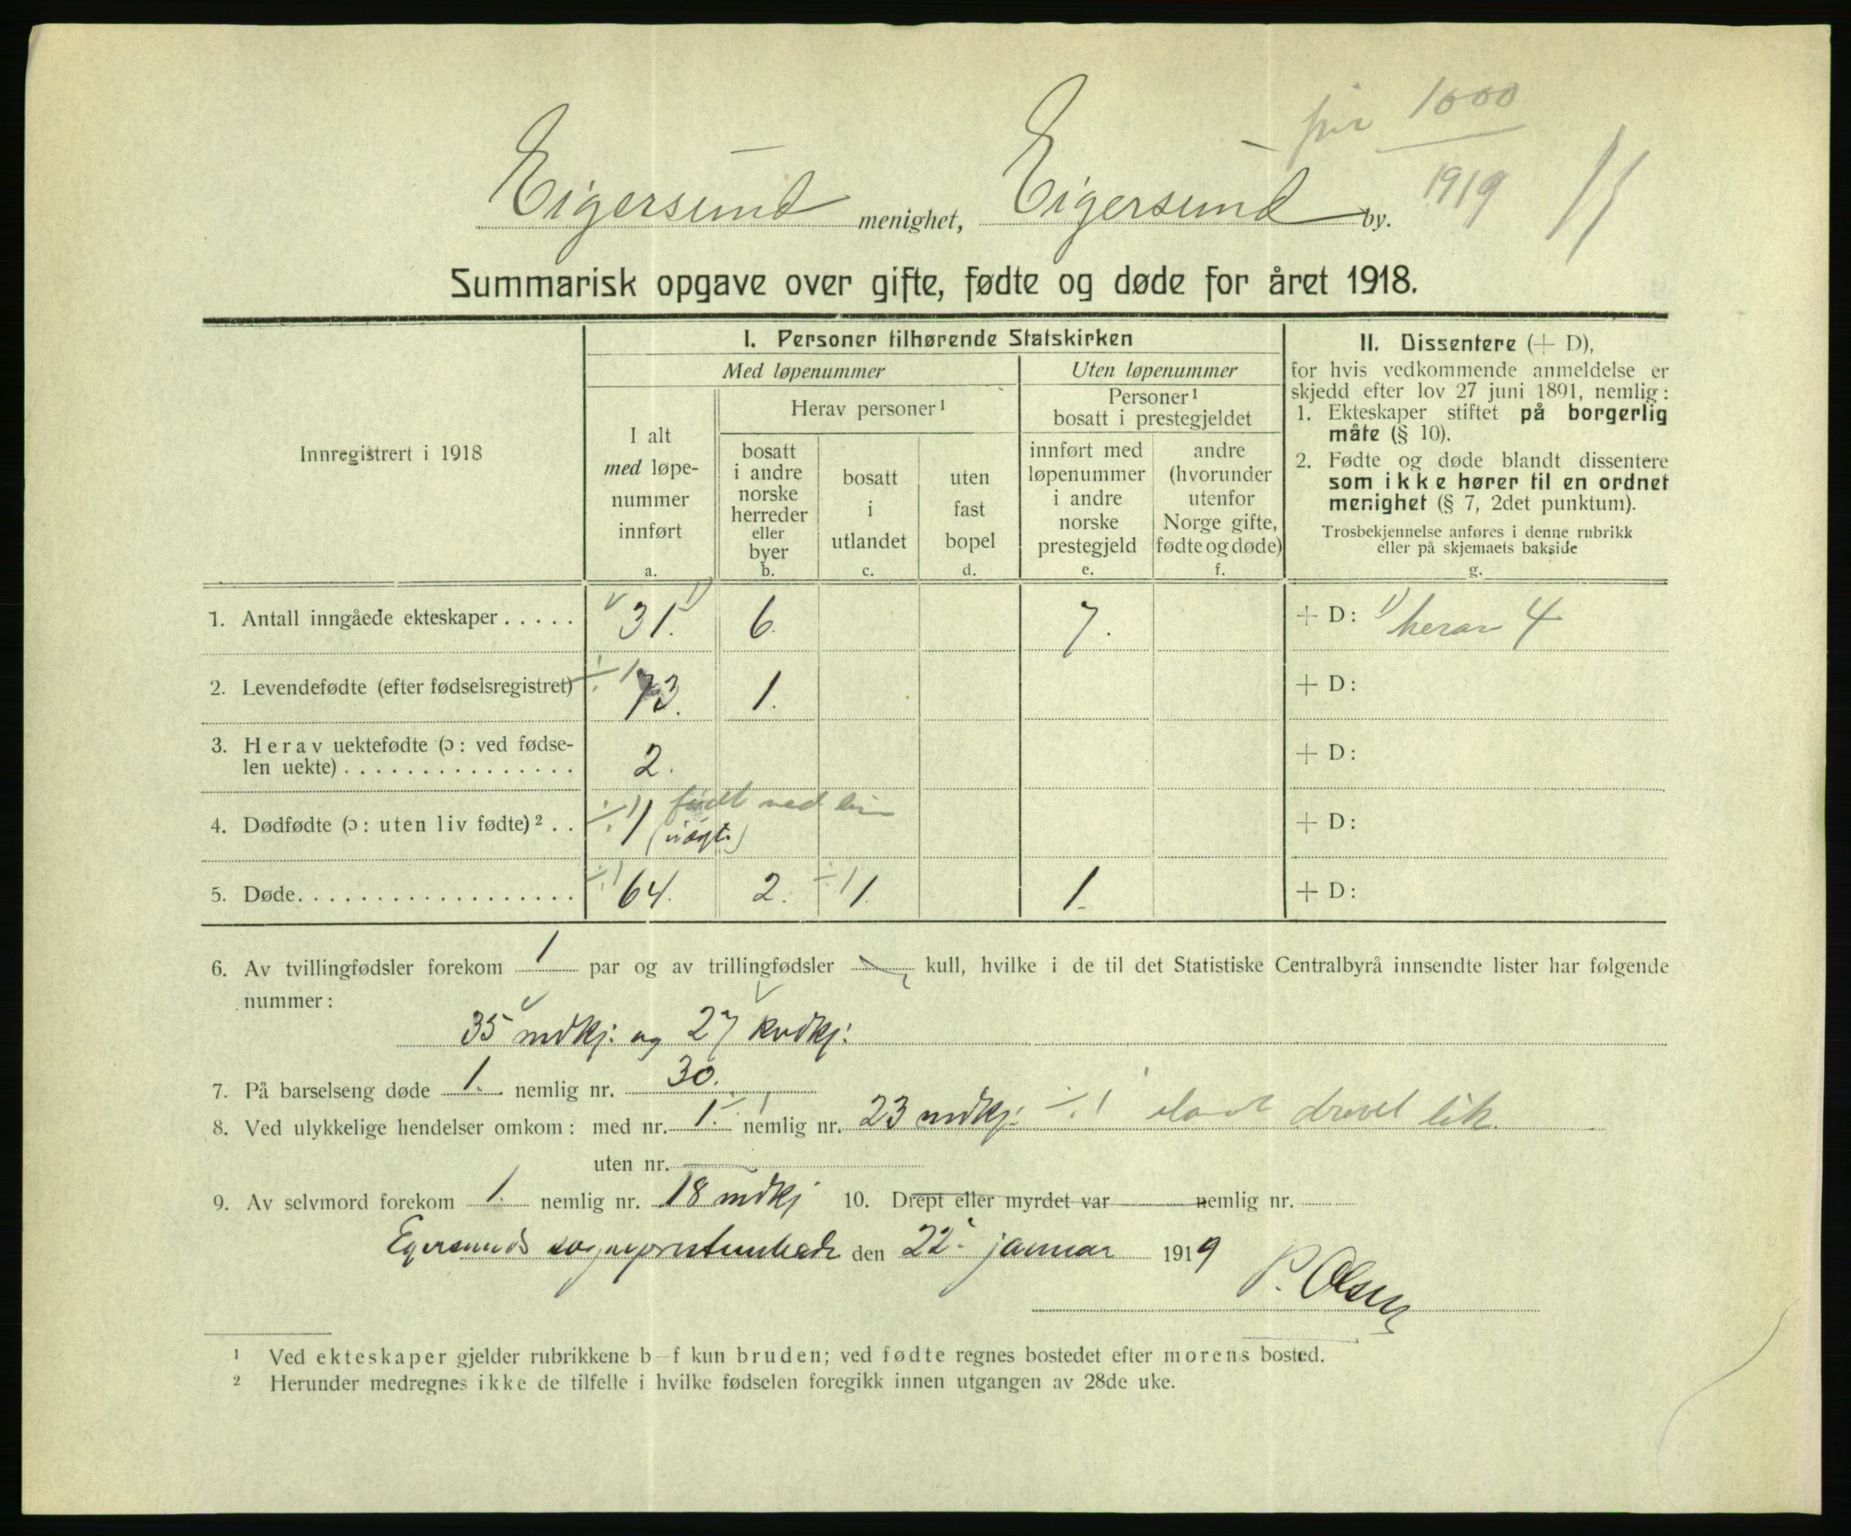 Eigersund menighet, Eigersund by.
1000
1919
Summarisk opgave over gifte, fødte og døde for året 1918.
Innregistrert i 1918
I. Personer tilhørende Statskirken
Med løpenummer
Uten løpenummer
I alt
med løpe-
nummer
innført
a.
Herav personer¹
bosatt
i andre
norske
herreder
eller
byer
b.
bosatt
i
utlandet
c.
uten
fast
bopel
d.
Personer¹
bosatt i prestegjeldet
innført med
løpenummer
i andre
norske
prestegjeld
e.
andre
(hvorunder
utenfor
Norge gifte,
fødte og døde)
f.
II. Dissentere (+ D),
for hvis vedkommende anmeldelse er
skjedd efter lov 27 juni 1891, nemlig:
1. Ekteskaper stiftet på borgerlig
måte (§ 10).
2. Fødte og døde blandt dissentere
som ikke hører til en ordnet
menighet (§ 7, 2det punktum).
Trosbekjennelse anføres i denne rubrikk
eller på skjemaets bakside
g.
1. Antall inngåede ekteskaper . . . . . 31. 1) 6. 7. + D: 1) herav 4
2. Levendefødte (efter fødselsregistret) ÷ 1 73. 1. + D:
3. Herav uektefødte (ɔ: ved fødse-
len uekte) . . . . . . . . . . . . . . . 2. + D:
født ved liv
4. Dødfødte (ɔ: uten liv fødte)² . . ÷ 1) 1 (uægt.) + D:
5. Døde. . . . . . . . . . . . . . . . . . ÷ 1) 64. 2. ÷ 1) 1. 1. + D:
6. Av tvillingfødsler forekom 1 par og av trillingfødsler kull, hvilke i de til det Statistiske Centralbyrå innsendte lister har følgende
nummer:
35 mdkj. og 27 kvdkj.
7. På barselseng døde 1. nemlig nr. 30.
8. Ved ulykkelige hendelser omkom: med nr. 1. ÷ 1 nemlig nr. 23 mdkj. ÷ 1 drevet lik.
uten nr.
9. Av selvmord forekom 1. nemlig nr. 18 mdkj 10. Drept eller myrdet var nemlig nr.
Egersunds sogneprestembede den 22. januar 1919
P. Olsen
¹ Ved ekteskaper gjelder rubrikkene b–f kun bruden; ved fødte regnes bostedet efter morens bosted.
² Herunder medregnes ikke de tilfelle i hvilke fødselen foregikk innen utgangen av 28de uke.